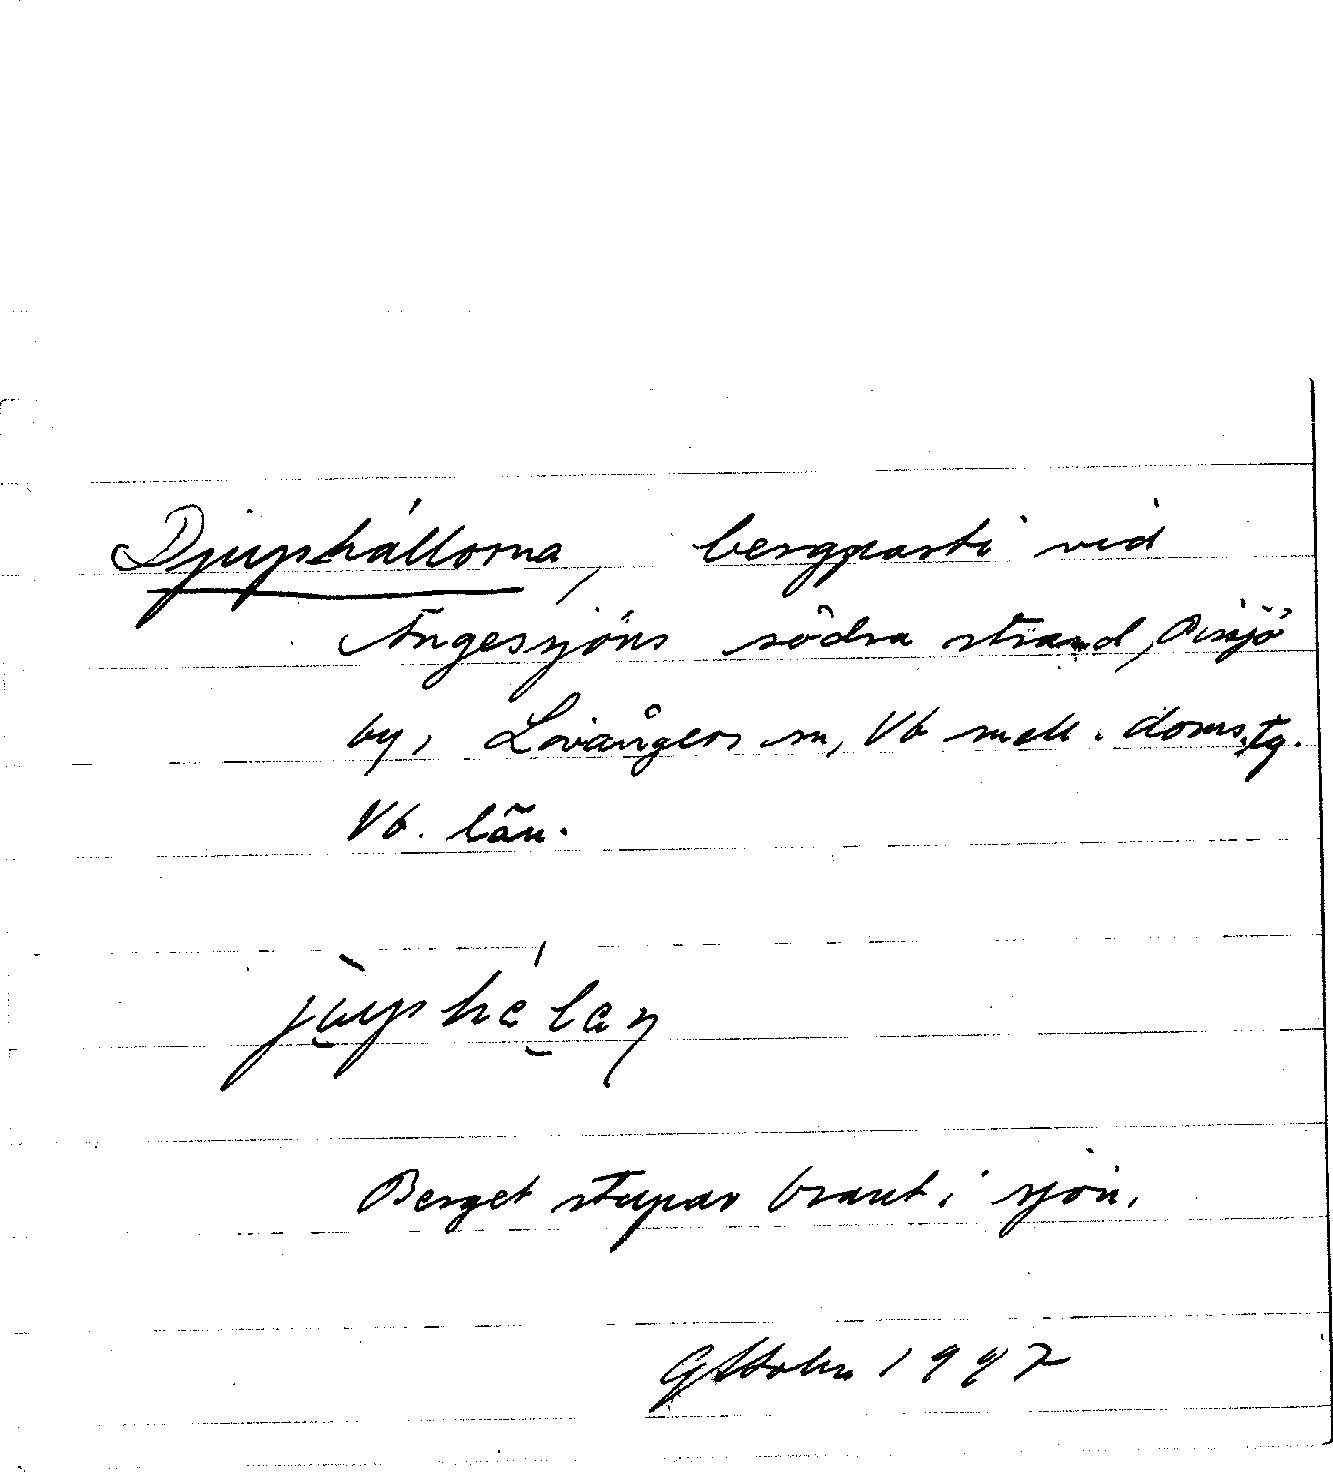 Djuphällorna, bergparti vid
Ängessjöns södra strand, Bissjö
by, Lövångers sn, Vb mell. doms.tg.
Vb. län.
Berget stupar brant i sjön.
GHolm 1947